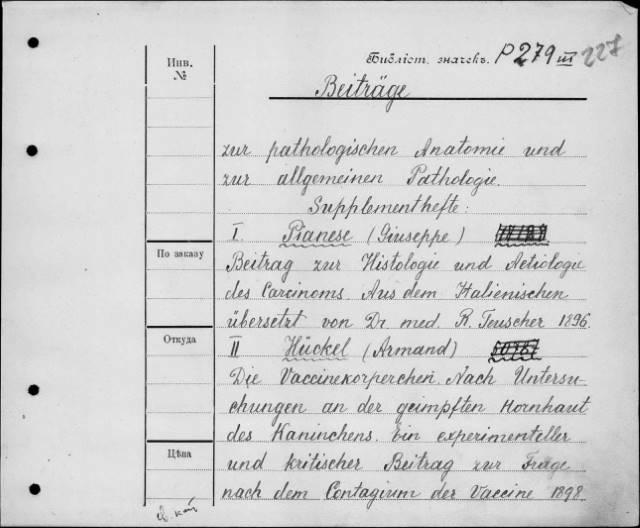 Инв.
№
Библіот. значекъ. P 279 III 227
Beiträge
zur pathologischen Anatomie und
zur allgemeinen Pathologie.
Supplementhefte:
I. Pianese (Giuseppe)
По заказу
Beitrag zur Histologie und Aetiologie
des Carcinoms. Aus dem Italienischen
übersetzt von Dr. med. R. Teuscher 1896.
Откуда
II Hückel (Armand)
Die Vaccinekörperchen. Nach Untersu-
chungen an der geimpften Hornhaut
des Kaninchens. Ein experimenteller
Цѣна
und kritischer Beitrag zur Frage
nach dem Contagium der Vaccine 1898.